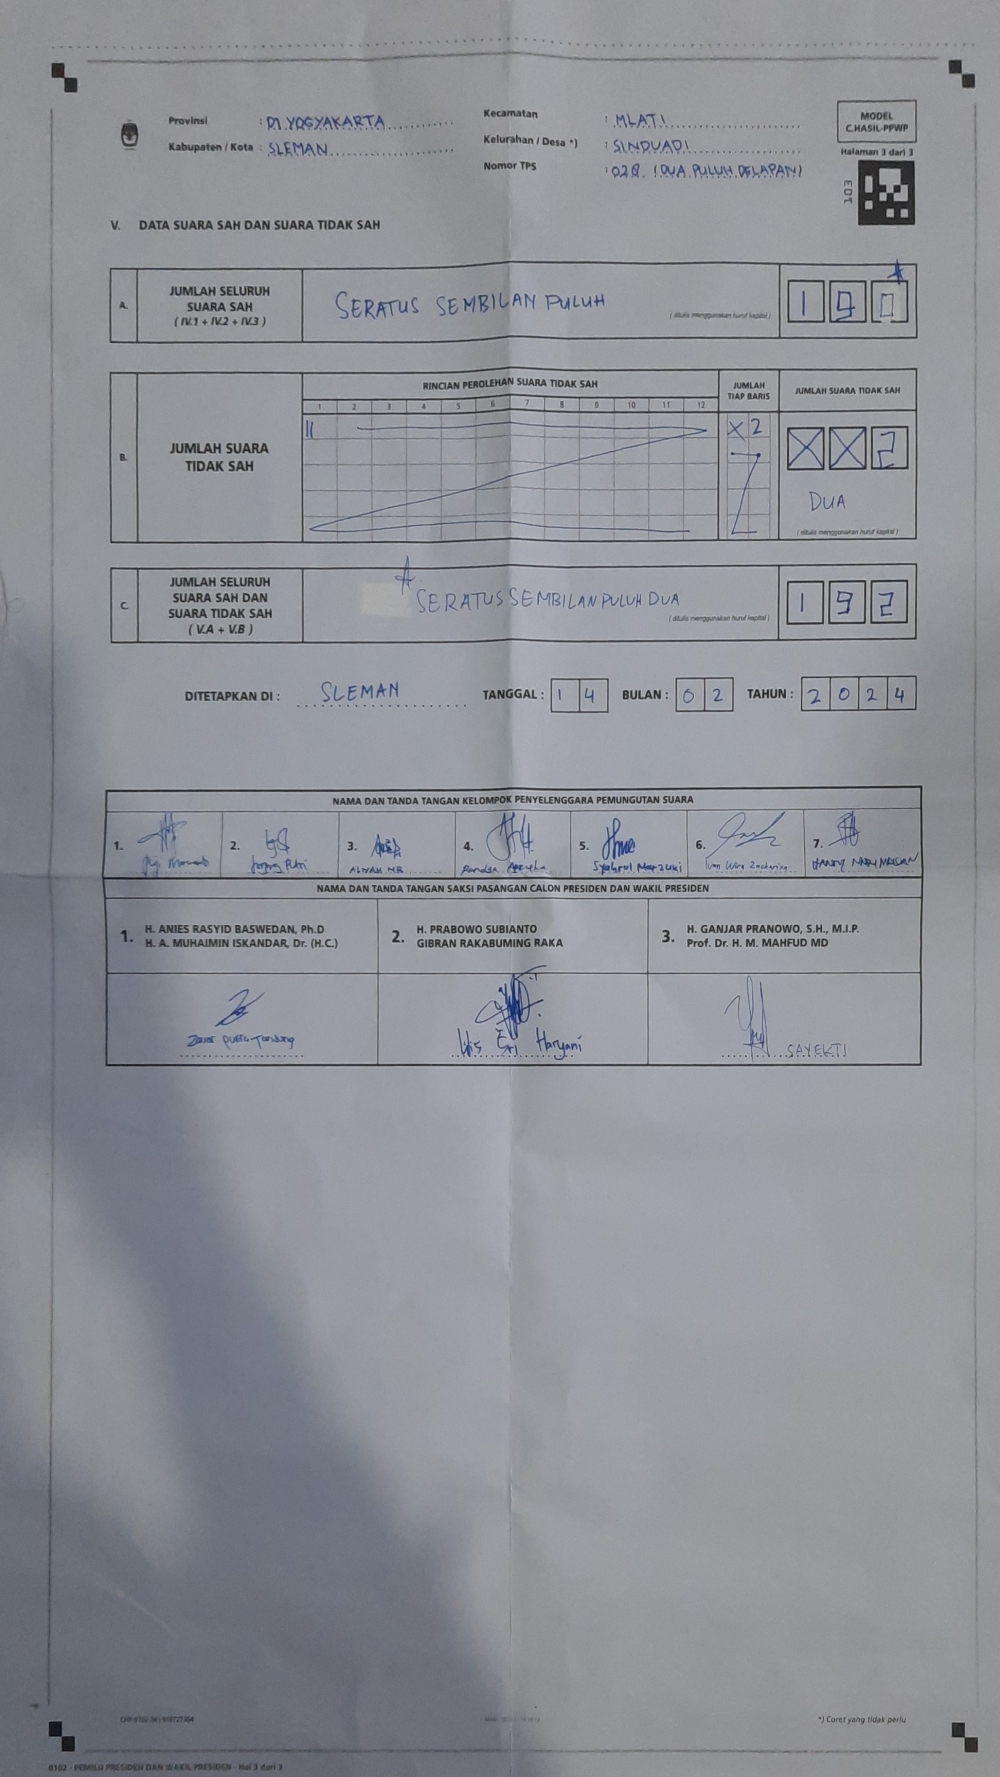 Provinsi : DI YOGYAKARTA
Kabupaten / Kota : SLEMAN
Kecamatan : MLATI
Kelurahan / Desa *) : SINDUADI
Nomor TPS : 028 (DUA PULUH DELAPAN)
MODEL
C.HASIL-PPWP
Halaman 3 dari 3
V. DATA SUARA SAH DAN SUARA TIDAK SAH
A. JUMLAH SELURUH
SUARA SAH
( IV.1 + IV.2 + IV.3 )
SERATUS SEMBILAN PULUH
( ditulis menggunakan huruf kapital )
1 9 0
B. JUMLAH SUARA
TIDAK SAH
RINCIAN PEROLEHAN SUARA TIDAK SAH
1 2 3 4 5 6 7 8 9 10 11 12
JUMLAH
TIAP BARIS
X 2
JUMLAH SUARA TIDAK SAH
X X 2
DUA
( ditulis menggunakan huruf kapital )
C. JUMLAH SELURUH
SUARA SAH DAN
SUARA TIDAK SAH
( V.A + V.B )
SERATUS SEMBILAN PULUH DUA
( ditulis menggunakan huruf kapital )
1 9 2
DITETAPKAN DI : SLEMAN TANGGAL : 1 4 BULAN : 0 2 TAHUN : 2 0 2 4
NAMA DAN TANDA TANGAN KELOMPOK PENYELENGGARA PEMUNGUTAN SUARA
1. 2. 3. 4. 5. 6. 7.
Syahrul Marzuki
NAMA DAN TANDA TANGAN SAKSI PASANGAN CALON PRESIDEN DAN WAKIL PRESIDEN
1. H. ANIES RASYID BASWEDAN, Ph.D
H. A. MUHAIMIN ISKANDAR, Dr. (H.C.)
2. H. PRABOWO SUBIANTO
GIBRAN RAKABUMING RAKA
3. H. GANJAR PRANOWO, S.H., M.I.P.
Prof. Dr. H. M. MAHFUD MD
Haryani
SAYEKTI
*) Coret yang tidak perlu
0102 - PEMILU PRESIDEN DAN WAKIL PRESIDEN - Hal 3 dari 3